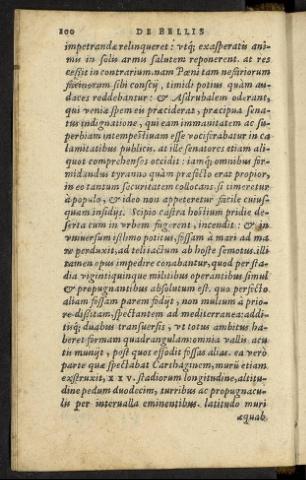 100 DE BELLIS
impetrandæ relinqueret: utq; exasperatis ani-
mis in solis armis salutem reponerent. at res
cessit in contrarium. nam Pœni tam nefariorum
facinorum sibi conscij, timidi potius quàm au-
daces reddebantur: & Asdrubalem oderant,
qui veniæ spem eis præciderat, præcipua Sena-
tus indignatione, qui eam immanitatem ac su-
perbiam intempestiuam esse vociferabatur in ca
lamitatibus publicis. at ille senatores etiam ali-
quot comprehensos occidit: iamq; omnibus for-
midandus tyranno quàm præfecto erat propior,
in eo tantum securitatem collocans, si timeretur
à populo, & ideo non appeteretur facile cuius-
quam insidijs. Scipio castra hostium pridie de-
serta cum in vrbem fugerent, incendit: & in
vniuersum isthmo potitus, fossam à mari ad ma
re perduxit, ad teli iactum ab hoste semotus. illi
tamen opus impedire conabantur, quod per sta-
dia vigintiquinque militibus operantibus simul
& propugnantibus absolutum est. quo perfecto
aliam fossam parem fodijt, non multum à prio-
re distitam, spectantem ad mediterranea: addi-
tisq; duabus transuersis, vt totus ambitus ha-
beret formam quadrangulam: omnia vallis acu
tis muniit, post quos effodit fossas alias. ea verò
parte quæ spectabat Carthaginem, murũ etiam
exstruxit, XXV. stadiorum longitudine, altitu-
dine pedum duodecim, turribus ac propugnacu-
lis per interualla eminentibus. latitudo muri
æquab